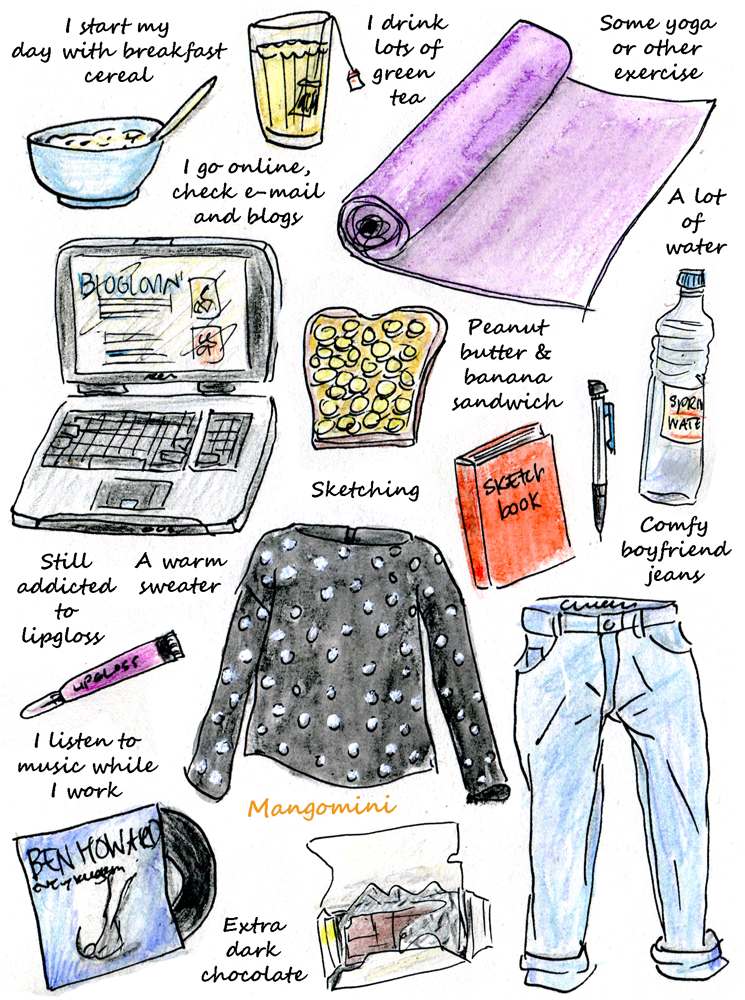 I start my
day with breakfast
cereal
I drink
lots of
green
tea
Some yoga
or other
exercise
I go online,
check e-mail
and blogs
A lot
of
water
BLOGLOVIN'
Peanut
butter &
banana
sandwich
BJORN
WATE
Sketching
SKETCH
book
Comfy
boyfriend
jeans
Still
addicted
to
lipgloss
A warm
sweater
LIPGLOSS
I listen to
music while
I work
Mangomini
BEN HOWARD
Extra
dark
chocolate